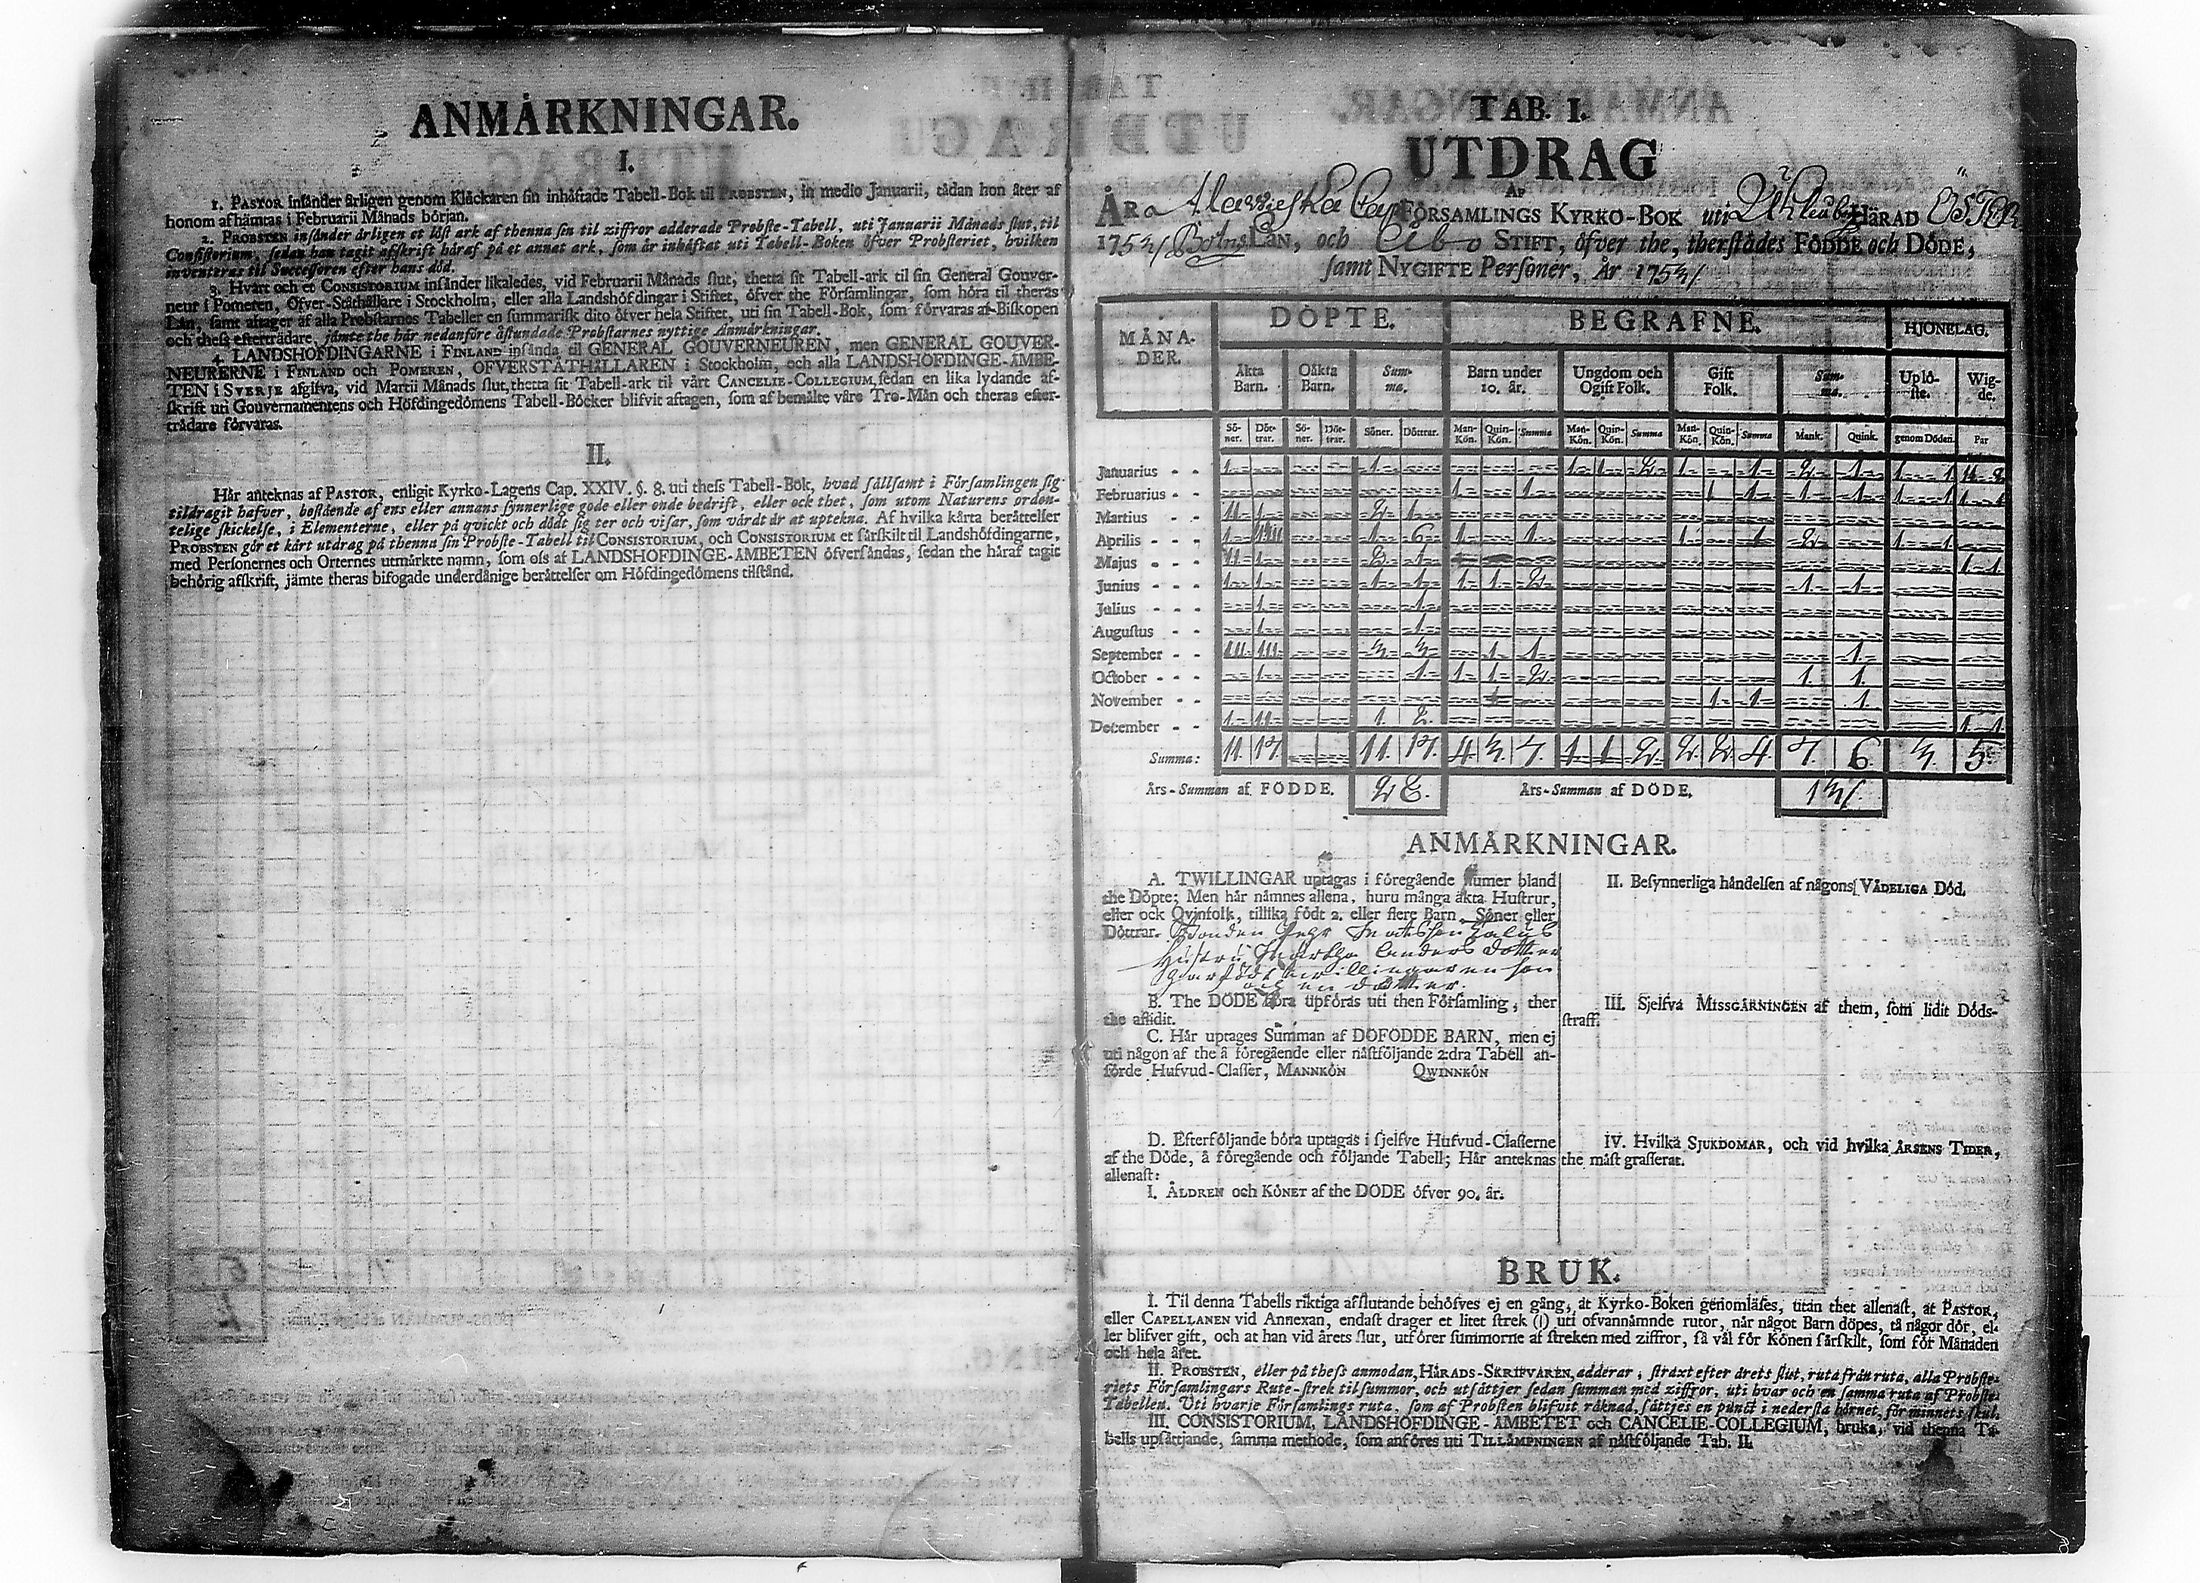 ANMÅRKNINGAR.
I.
1. PASTOR insånder årligen genom Klåckaren sin inhåftade Tabell-Bok til PROBSTEN, in medio Januarii, tådan hon åter af
honom afhåmtas i Februarii Månads början.
2. PROBSTEN insånder årligen et löst ark af thenna sin til ziffror adderade Probste-Tabell, uti Januarii Månads slut, til
Consistorium, sedan han tagit afskrift håraf på et annat ark, som år inhåftat uti Tabell-Boken öfver Probsteriet, hvilken
inventeras til Successoren efter hans död.
3. Hvart och et CONSISTORIUM insånder likaledes, vid Februarii Månads slut, thetta sit Tabell-ark til sin General Gouver-
neur i Pomeren, Öfver-Ståthållare i Stockholm, eller alla Landshöfdingar i Stiftet, öfver the Församlingar, som höra til theras
Lån, samt aftager af alla Probstarnes Tabeller en summarisk dito öfver hela Stiftet, uti sin Tabell-Bok, som förvaras af Biskopen
och thess eftertrådare, jåmte the hår nedanföre åstundade Probstarnes nyttige Anmårkningar.
4. LANDSHÖFDINGARNE i FINLAND insånda til GENERAL GOUVERNEUREN, men GENERAL GOUVER-
NEURERNE i FINLAND och POMEREN, ÖFVERSTÅTHÅLLAREN i Stockholm, och alla LANDSHÖFDINGE-ÅMBE-
TEN i SVERJE afgifva, vid Martii Månads slut, thetta sit Tabell-ark til vårt CANCELIE-COLLEGIUM, sedan en lika lydande af-
skrift uti Gouvernamentens och Höfdingedömens Tabell-Böcker blifvit aftagen, som af bemålte våre Tro-Mån och theras efter-
trådare förvaras.
II.
Hår anteknas af PASTOR, enligit Kyrko-Lagens Cap. XXIV. §. 8. uti thess Tabell-Bok, hvad sållsamt i Församlingen sig
tildragit hafver, bestående af ens eller annans synnerlige gode eller onde bedrift, eller ock thet, som utom Naturens orden-
telige skickelse, i Elementerne, eller på qvickt och dödt sig ter och visar, som vårdt år at uptekna. Af hvilka kårta beråttelser
PROBSTEN gör et kårt utdrag på thenna sin Probste-Tabell til CONSISTORIUM, och CONSISTORIUM et sårskilt til Landshöfdingarne,
med Personernes och Orternes utmårkte namn, som oss af LANDSHÖFDINGE-ÅMBETEN öfversåndas, sedan the håraf tagit
behörig afskrift, jämte theras bifogade underdånige beråttelser om Höfdingedömens tilstånd.
TAB. I.
UTDRAG
AF
ÅR Alawieska Cap FÖRSAMLINGS KYRKO-BOK uti HÅRAD ÖsTer
1753 Botns LÅN, och Åbo STIFT, öfver the, therstådes FÖDDE och DÖDE,
samt NYGIFTE Personer, År 1753
MÅNA-DER. DÖPTE. BEGRAFNE. HJONELAG.
Åkta Barn. Oåkta Barn. Sum-ma. Barn under 10. år. Ungdom och Ogift Folk. Gift Folk. Sum-ma. Uplö-ste. Wig-de.
Sö-ner. Döt-trar. Sö-ner. Döt-trar. Söner. Döttrar. Man-Kön. Quin-Kön. Summa Man-Kön. Quin-Kön. Summa Man-Kön. Quin-Kön. Summa Mank. Quink. genom Döden. Par
Januarius - - 1 1 1 1 2 1 1 2 1 1 1 11 2
Februarius - - 1 1 1 1 1 1 1 1 1 1
Martius - - 11 1 2 1
Aprilis - - 1 1 6 1 1 1 1 2 1 1
Majus - - 11 1 2 1 1 1
Junius - - 1 1 1 1 1 1 2 1 1
Julius - - - 1 1
Augustus - - 1 1
September - - 111 111 3 3 1 1 1
October - - - 1 1 1 1 2 1 1
November - - 1 1 1
December - - 1 11 1 2 1 1
Summa: 11. 17. 11. 17. 4 3 7. 1 1 2 2 2 4. 7. 6. 3. 5
Års-Summan af FÖDDE. 28. Års-Summan af DÖDE. 13
ANMÅRKNINGAR.
A. TWILLINGAR uptagas i föregående numer bland
the Döpte; Men hår nåmnes allena, huru många åkta Hustrur,
eller ock Qvinfolk, tillika födt 2. eller flere Barn. Söner eller
Döttrar. Bonden Matsson
Hustru Andersdotter
har födt twillingar en son
och en dotter.
B. The DÖDE böra upföras uti then Församling, ther
the aflidit.
C. Hår uptages Summan af DÖFÖDDE BARN, men ej
uti någon af the å föregående eller nåstföljande 2:dra Tabell an-
förde Hufvud-Classer, MANNKÖN QWINNKÖN
D. Efterföljande böra uptagas i sjelfve Hufvud-Classerne
af the Döde, å föregående och följande Tabell; Hår anteknas
allenast:
I. ÅLDREN och KÖNET af the DÖDE öfver 90. år.
II. Besynnerliga håndelsen af någons VÅDELIGA Död.
III. Sjelfva MISSGÅRNINGEN af them, som lidit Döds-
straff.
IV. Hvilka SJUKDOMAR, och vid hvilka ÅRSENS TIDER,
the måst grasserat.
BRUK.
I. Til denna Tabells riktiga afslutande behöfves ej en gång, at Kyrko-Boken genomlåses, utan thet allenast, at PASTOR,
eller CAPELLANEN vid Annexan, endast drager et litet strek (|) uti ofvannåmnde rutor, når något Barn döpes, tå någor dör, el-
ler blifver gift, och at han vid årets slut, utförer summorne af streken med ziffror, så vål för Könen sårskilt, som för Månaden
och hela året.
II. PROBSTEN, eller på thess anmodan, HÅRADS-SKRIFVAREN, adderar, straxt efter årets slut, ruta från ruta, alla Probste-
riets Församlingars Rute-strek til summor, och utsåttjer sedan summan med ziffror, uti hvar och en samma ruta af Probste-
Tabellen. Uti hvarje Församlings ruta, som af Probsten blifvit råknad, såttjes en punct i nedersta hörnet, för minnets skul.
III. CONSISTORIUM, LANDSHÖFDINGE-ÅMBETET och CANCELIE-COLLEGIUM, bruka, vid thenna Ta-
bells upsåttjande, samma methode, som anföres uti TILLÅMPNINGEN af nåstföljande Tab. II.